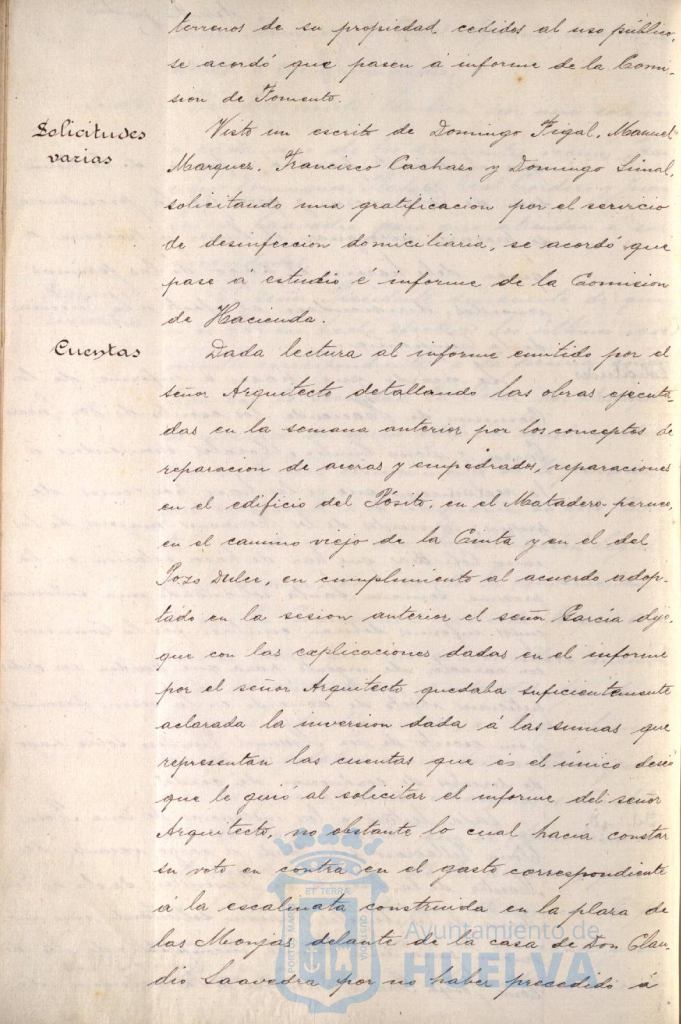 terrenos de su propiedad, cedidos al uso público,
se acordó que pasen á informe de la Comi-
sion de Fomento.
Solicitudes
varias
Visto un escrito de Domingo Figal, Manuel
Marquez, Francisco Cacharo y Domingo Simal,
solicitando una gratificacion por el servicio
de desinfeccion domiciliaria, se acordó que
pase á estudio é informe de la Comision
de Hacienda.
Cuentas
Dada lectura al informe emitido por el
señor Arquitecto detallando las obras ejecuta-
das en la semana anterior por los conceptos de
reparacion de aceras y empedrados, reparaciones
en el edificio del Pósito, en el Matadero
en el camino viejo de la Cinta y en el del
Pozo Dulce, en cumplimiento al acuerdo adop-
tado en la sesion anterior el señor García dijo:
que con las explicaciones dadas en el informe
por el señor Arquitecto quedaba suficientemente
aclarada la inversion dada á las sumas que
representan las cuentas que es el único deseo
que le guió al solicitar el informe del señor
Arquitecto, no obstante lo cual hacia constar
su voto en contra en el gasto correspondiente
á la escalinata construida en la plaza de
las Monjas delante de la casa de Don Clau-
dio Saavedra por no haber precedido á
PORTUS MARIS ET TERRAE CUSTODIA
Ayuntamiento de
HUELVA